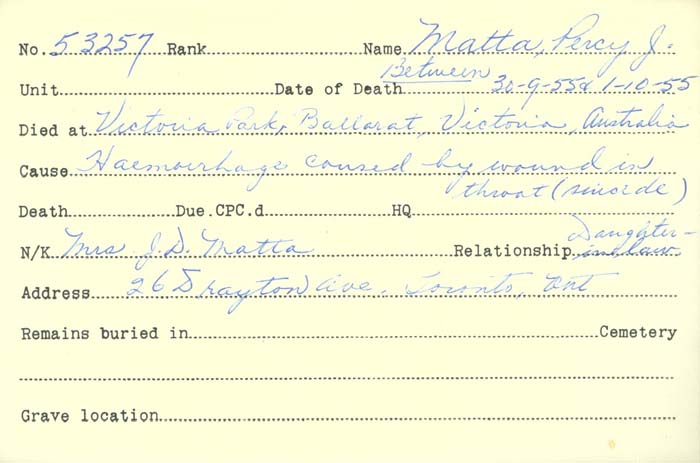 No. 53257 Rank Name Matta, Percy J.
Unit Date of Death Between 30-9-55 & 1-10-55
Died at Victoria Park, Ballarat, Victoria, Australia
Cause Haemorrhage caused by wound in
throat (suicide)
Death Due.CPC.d HQ
N/K Mrs J. D. Matta Relationship Daughter-
in-law
Address 26 Drayton Ave. Toronto, Ont
Remains buried in Cemetery
Grave location